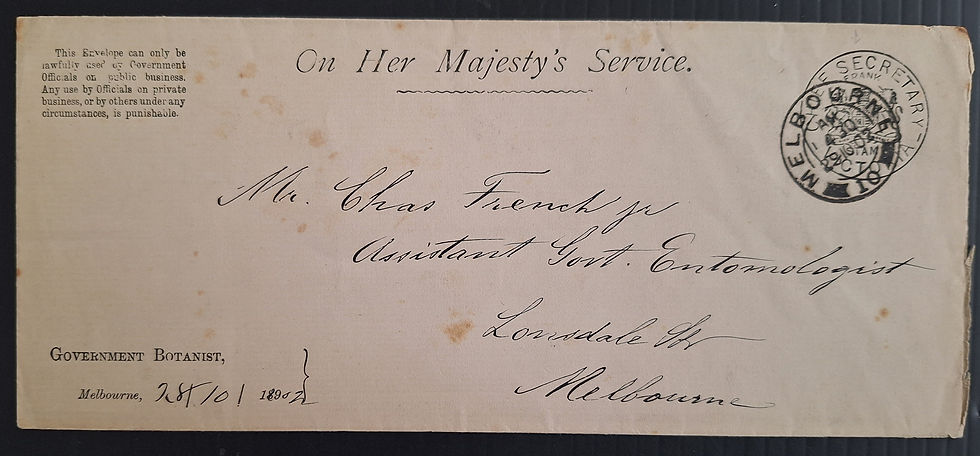 This Envelope can only be
lawfully used by Government
Officials on public business.
Any use by Officials on private
business, or by others under any
circumstances, is punishable.
On Her Majesty's Service.
SECRETARY
FRANK
STAMP
MELBOURNE
10
OC
Mr. Chas French jr
Assistant Govt. Entomologist
Lonsdale St
Melbourne
GOVERNMENT BOTANIST,
Melbourne, 28/10/ 1902